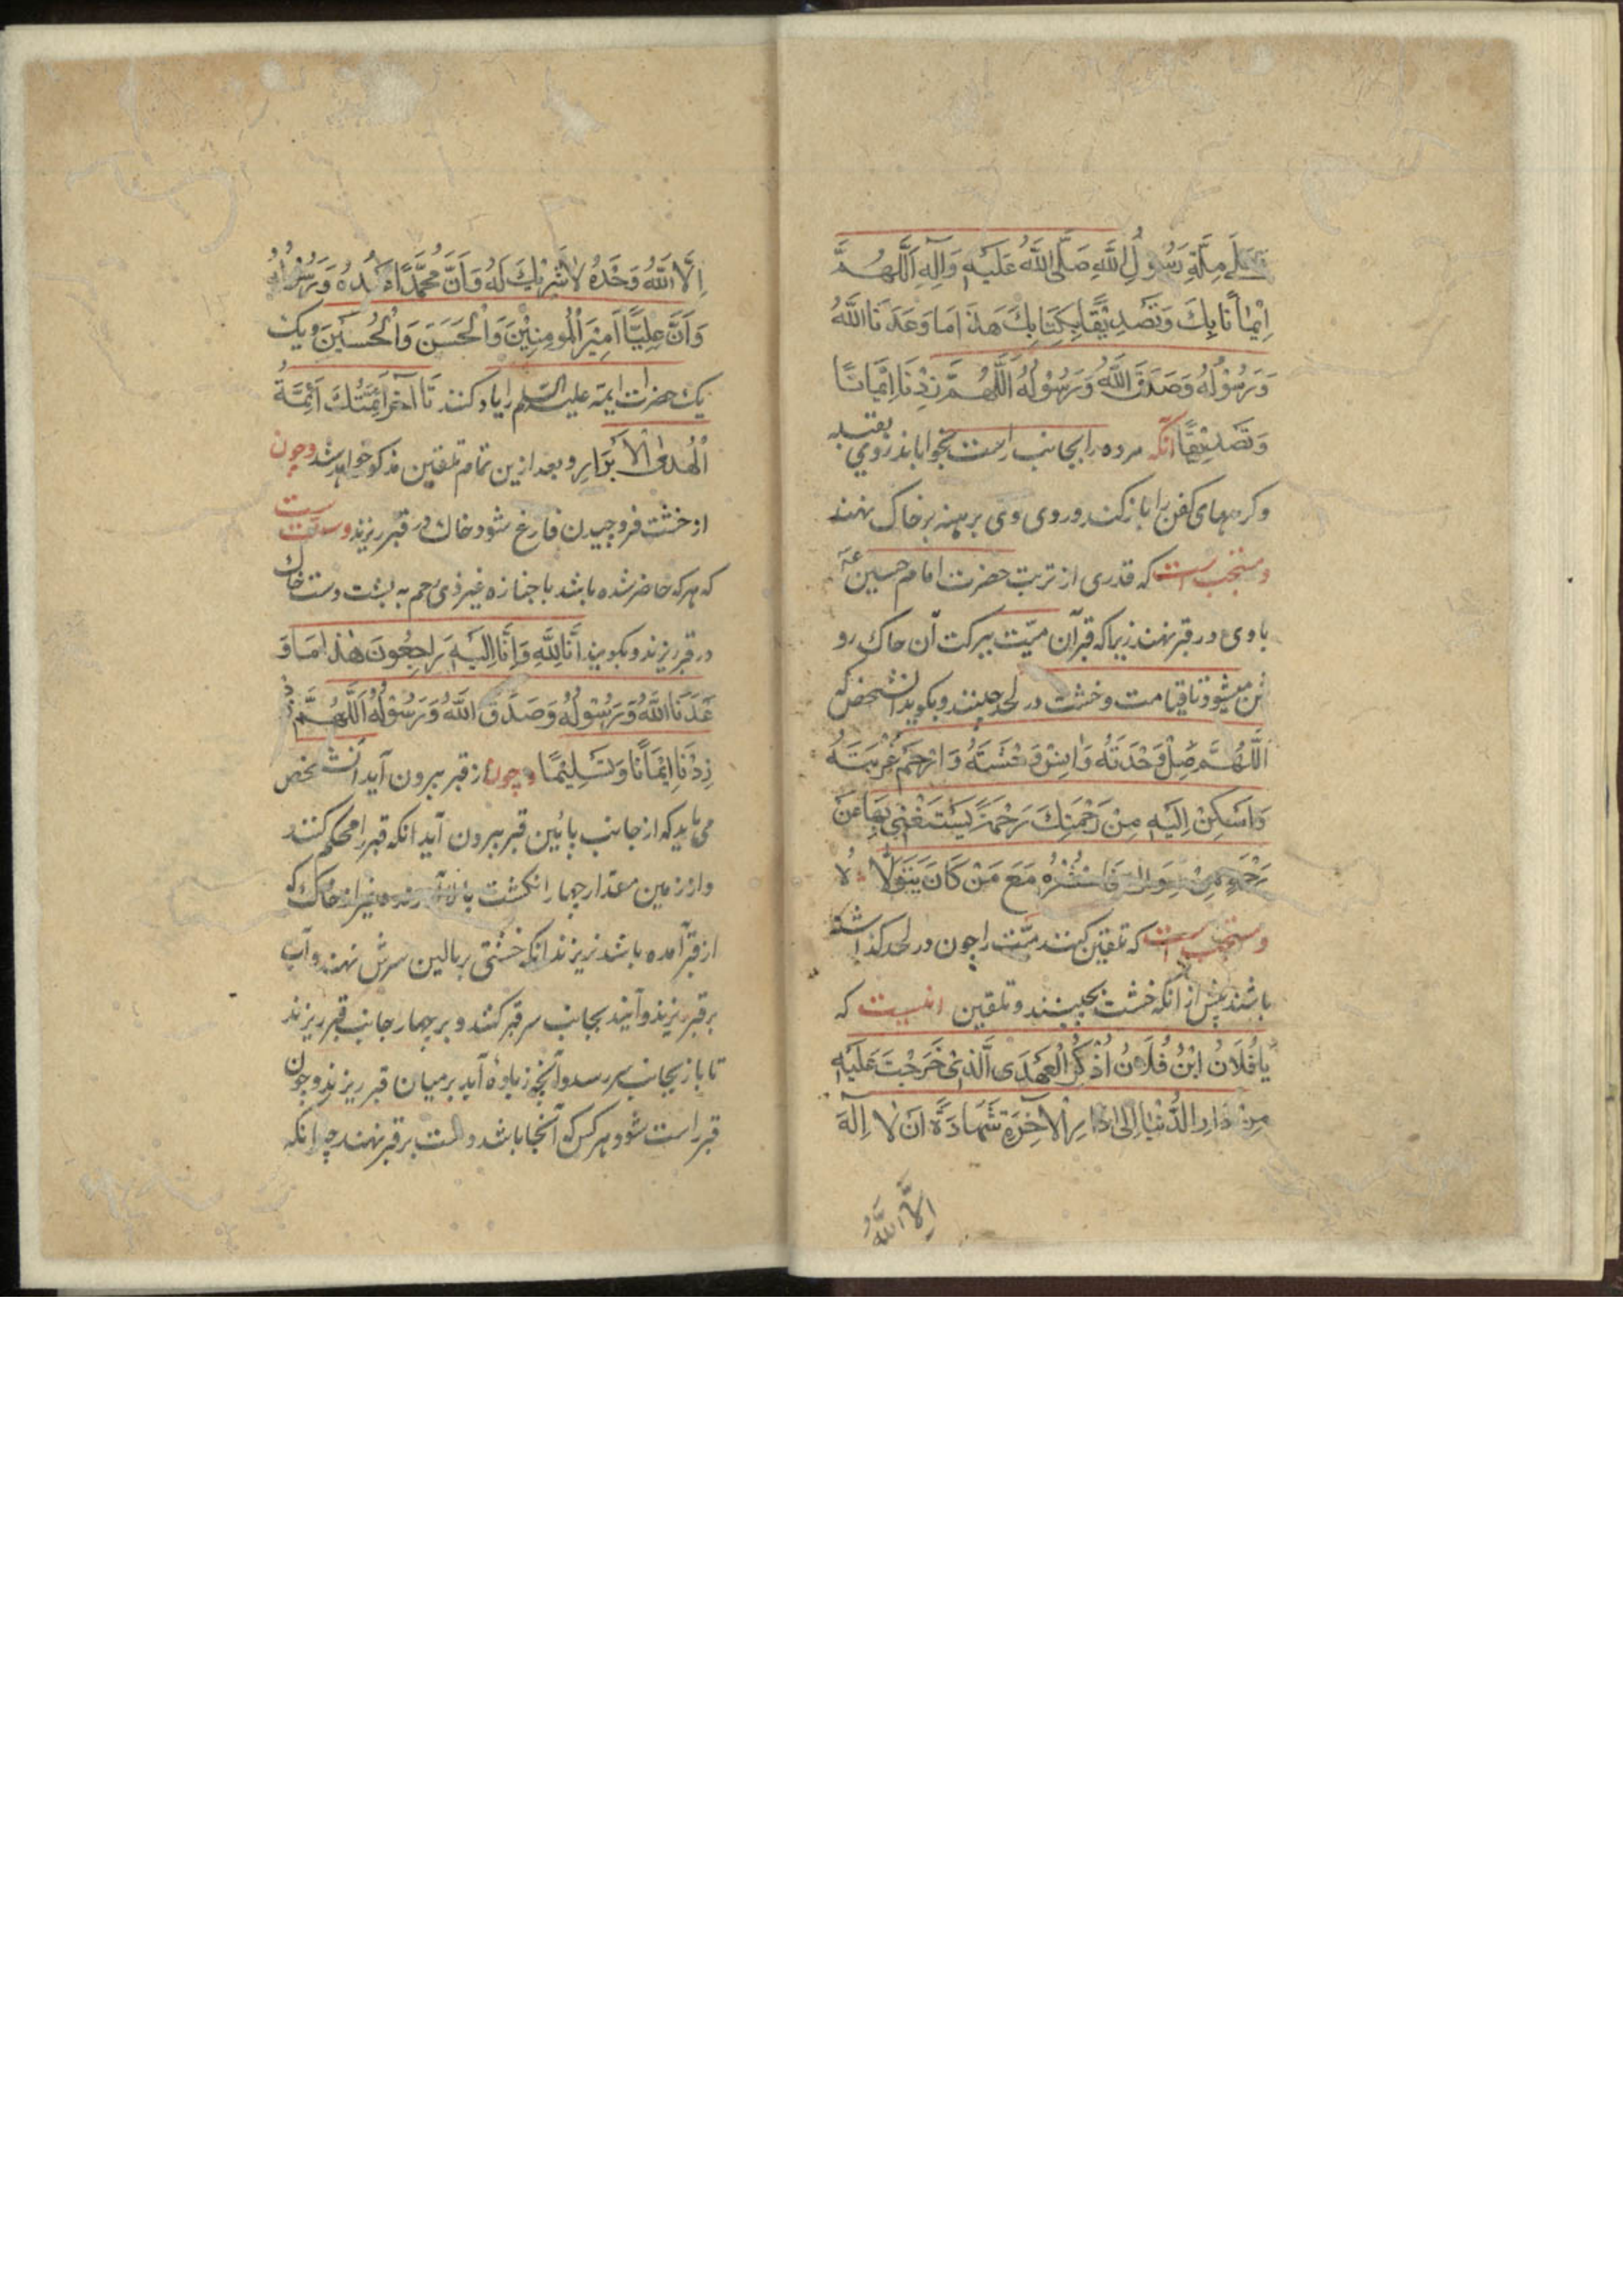 وَعَلَى مِلَّةِ رَسُولِ اللهِ صَلَّى اللهُ عَلَيْهِ وَآلِهِ اَللّٰهُمَّ
اِيْمَانًا بِكَ وَتَصْدِيْقًا بِكِتَابِكَ هَذَا مَا وَعَدَنَا اللهُ
وَرَسُوْلُهُ وَصَدَقَ اللهُ وَرَسُوْلُهُ اَللّٰهُمَّ زِدْنَا اِيْمَانًا
وَتَصْدِيْقًا آنكه مرده را بجانب راست بخوابانند روی بقبله
و کرههای کفن را باز کنند و روی وی برهنه بر خاک نهند
و مستحب است که قدری از تربت حضرت امام حسین ع
با وی در قبر نهند زیرا که قبر آن میّت ببرکت آن خاک رو
شن میشود تا قیامت و خشت در لحد چینند و بکوید آنشخص که
اَللّٰهُمَّ صِلْ وَحْدَتَهُ وَانِسْ وَحْشَتَهُ وَارْحَمْ غُرْبَتَهُ
وَاَسْكِنْ اِلَيْهِ مِنْ رَحْمَتِكَ رَحْمَةً يَسْتَغْنِي بِهَا عَنْ
رَحْمَةِ مَنْ سِوَاكَ فَاحْشُرْهُ مَعَ مَنْ كَانَ يَتَوَلَّاهُ
و مستحب است که تلقین کنند میّت را چون در لحد کذاشته
باشند پیش از انکه خشت بچینند و تلقین اینست که
يَا فُلَانُ ابْنُ فُلَانُ اُذْكُرْ الْعَهْدَى الَّذِىْ خَرَجْتَ عَلَيْهِ
مِنْ دَارِ الدُّنْيَا اِلَى دَارِ الْآخِرَةِ شَهَادَةً اَنْ لَا اِلٰهَ
اِلَّا اللهُ
اِلَّا اللهُ وَحْدَهُ لَا شَرِيْكَ لَهُ وَاَنَّ مُحَمَّدًا عَبْدُهُ وَرَسُوْلُهُ
وَاَنَّ عَلِيًّا اَمِيْرَ الْمُومِنِيْنَ وَالْحَسَنَ وَالْحُسَيْنَ و یک
یک حضرات ایمه علیه السلم را یاد کنند تا آخر اَئِمَّتُكَ اَئِمَّةُ
الْهُدَى الْاَبْرَارِ و بعد ازین تمام تلقین مذکور خواهد شد و چون
از خشت فرو چیدن فارغ شود خاک در قبر ریزند و سنت است
که هر که حاضر شده باشد با جنازه غیر ذی رحم به پشت دست خاک
در قبر ریزند و بکویند اِنَّا لِلّٰهِ وَاِنَّا اِلَيْهِ رَاجِعُونَ هٰذَا مَا وَ
عَدَنَا اللهُ وَرَسُوْلُهُ وَصَدَقَ اللهُ وَرَسُوْلُهُ اَللّٰهُمَّ
زِدْنَا اِيْمَانًا وَتَسْلِيْمًا و چون از قبر بیرون آید آنشخص
می باید که از جانب پائین قبر بیرون آید انکه قبر را محکم کنند
و از زمین مقدار چهار انکشت بالا آورند و غیر از خاک که
از قبر آمده باشد نریزند انکه خشتی بر بالین سرش نهند و آب
بر قبر ریزند و آیند بجانب سر قبر کنند و بر چهار جانب قبر ریزند
تا باز بجانب سر رسد و آنچه زیاده آید بر میان قبر ریزند و چون
قبر راست شود هر کس که آنجا باشد دست بر قبر نهند چرا انکه